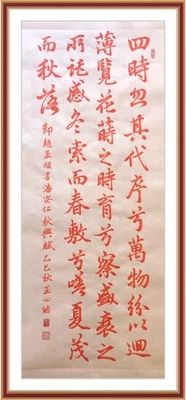 四時忽其代序兮萬物紛以迴
薄覽花蒔之時育兮察盛衰之
所託感冬索而春敷兮嗟夏茂
而秋落
節趙孟頫書潘安仁秋興賦 乙巳秋 王心